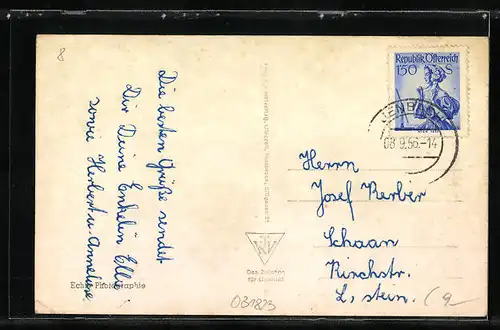 8
Die besten Grüße sendet
Dir Deine Enkelin Elli
sowie Herbert u. Anneliese.
Echte Photographie
Das Zeichen
für Qualität
031823
Republik Österreich
150 S
JENBACH
08.9.56.-14
Herrn
Josef Kerber
Schaan
Kirchstr.
L, stein.